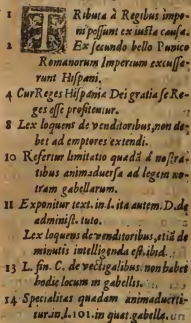 1 TRibuta à Regibus impo-
ni possunt ex iusta causa.
2 Ex secundo bello Punico
Romanorum Imperium excusse-
runt Hispani.
4 Cur Reges Hispania Dei gratia se Re-
ges esse profitentur.
8 Lex loquens de venditoribus, non de-
bet ad emptores extendi.
10 Refertur limitatio quædã à nostra-
tibus animaduersa ad legem nos-
tram gabellarum.
11 Exponitur text. in l. ita autem. D. de
administ. tuto.
Lex loquens de venditoribus, etiã de
minutis intelligenda est. ibid.
13 L. fin. C. de vectigalibus non habet
hodie locum in gabellis.
14 Specialitas quædam animaduerti-
tur. in l. 101. in quat. gabella.